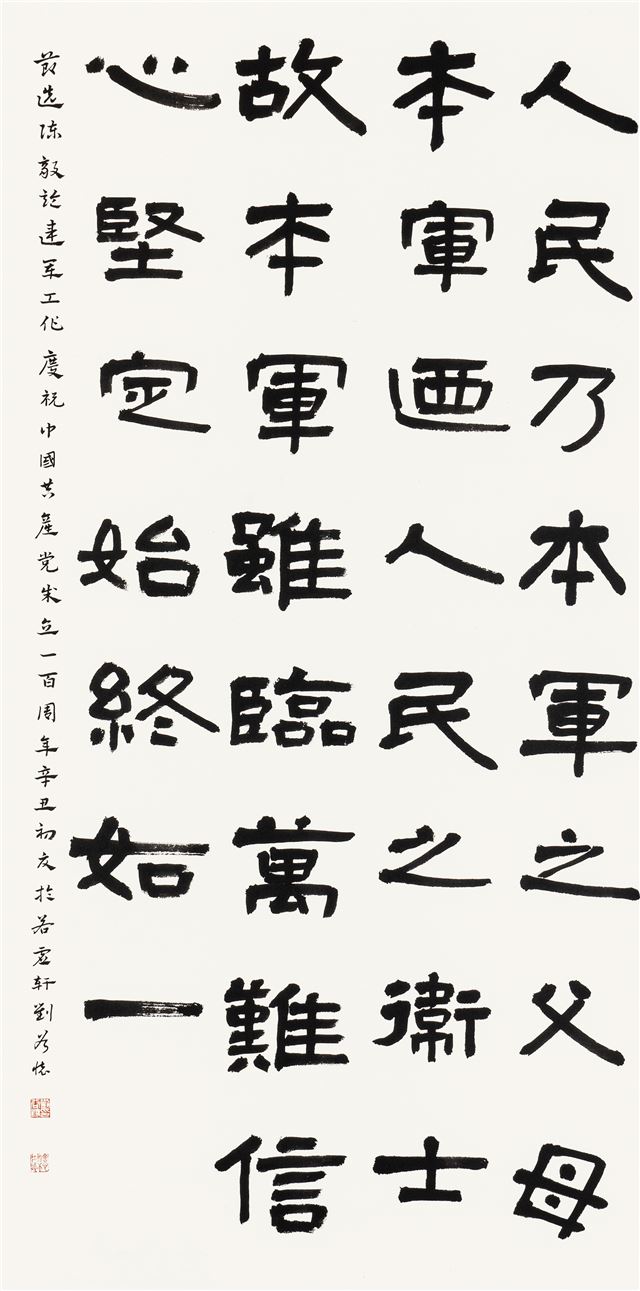 人民乃本軍之父母
本軍迺人民之衛士
故本軍雖臨萬難信
心堅定始終如一
節选陈毅论建军工作慶祝中國共產党成立一百周年辛丑初夏於若虚轩劉